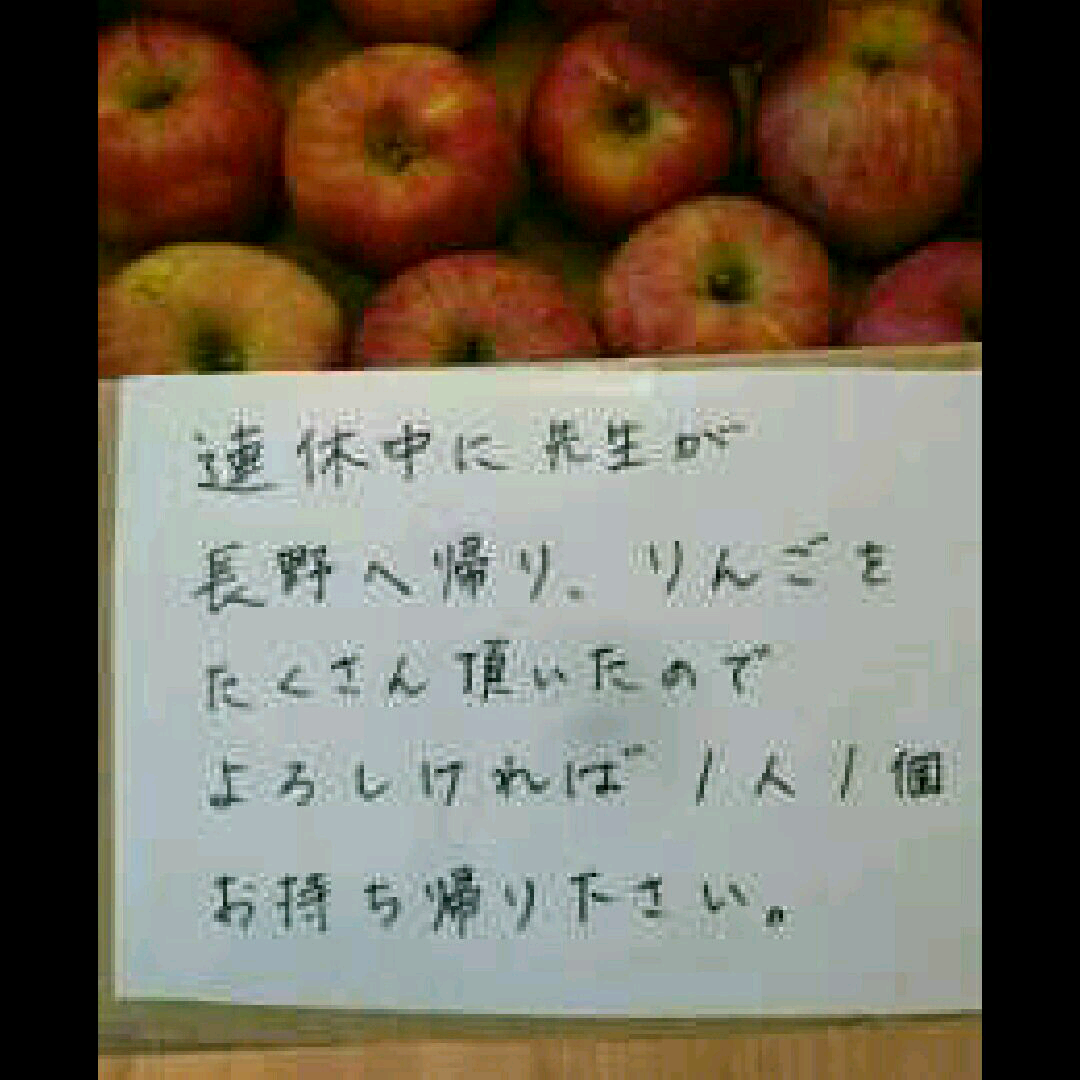 連休中に先生が
長野へ帰り、りんごを
たくさん頂いたので
よろしければ1人1個
お持ち帰り下さい。